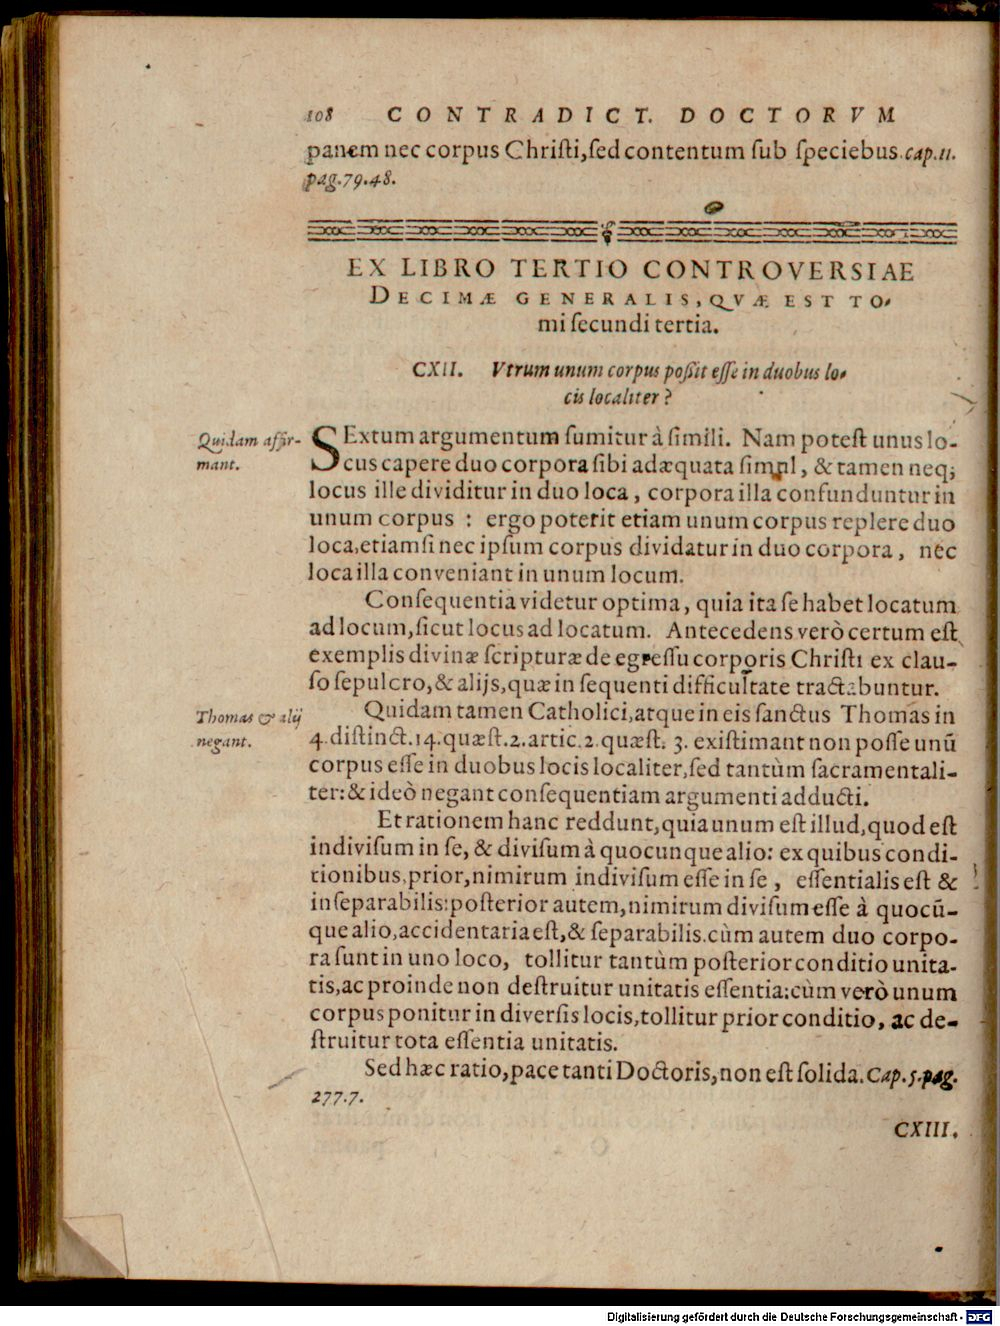 108 CONTRADICT. DOCTORVM
panem nec corpus Chriſti,ſed contentum ſub ſpeciebus.cap.11.
pag.79.48.
EX LIBRO TERTIO CONTROVERSIAE
DECIMÆ GENERALIS, QVÆ EST TO-
mi ſecundi tertia.
CXII. Vtrum unum corpus poſsit eſſe in duobus lo-
cis localiter?
Quidam affir-
mant.
SExtum argumentum ſumitur à ſimili. Nam poteſt unus lo-
cus capere duo corpora ſibi adæquata ſimul, & tamen neq;
locus ille dividitur in duo loca, corpora illa confunduntur in
unum corpus : ergo poterit etiam unum corpus replere duo
loca,etiamſi nec ipſum corpus dividatur in duo corpora, nec
loca illa conveniant in unum locum.
Conſequentia videtur optima, quia ita ſe habet locatum
ad locum,ſicut locus ad locatum. Antecedens verò certum eſt
exemplis divinæ ſcripturæ de egreſſu corporis Chriſti ex clau-
ſo ſepulcro,& alijs,quæ in ſequenti difficultate tractabuntur.
Thomas & alij
negant.
Quidam tamen Catholici,atque in eis ſanctus Thomas in
4.diſtinct.14.quæſt.2.artic.2.quæſt. 3. exiſtimant non poſſe unũ
corpus eſſe in duobus locis localiter,ſed tantùm ſacramentali-
ter:& ideò negant conſequentiam argumenti adducti.
Et rationem hanc reddunt,quia unum eſt illud,quod eſt
indiviſum in ſe, & diviſum à quocunque alio: ex quibus condi-
tionibus,prior,nimirum indiviſum eſſe in ſe, eſſentialis eſt &
inſeparabilis:poſterior autem,nimirum diviſum eſſe à quocũ-
que alio,accidentaria eſt,& ſeparabilis.cùm autem duo corpo-
ra ſunt in uno loco, tollitur tantùm poſterior conditio unita-
tis,ac proinde non deſtruitur unitatis eſſentia:cùm verò unum
corpus ponitur in diverſis locis,tollitur prior conditio, ac de-
ſtruitur tota eſſentia unitatis.
Sed hæc ratio,pace tanti Doctoris,non eſt ſolida.Cap.5.pag.
277.7.
CXIII.
Digitalisierung gefördert durch die Deutsche Forschungsgemeinschaft - DFG